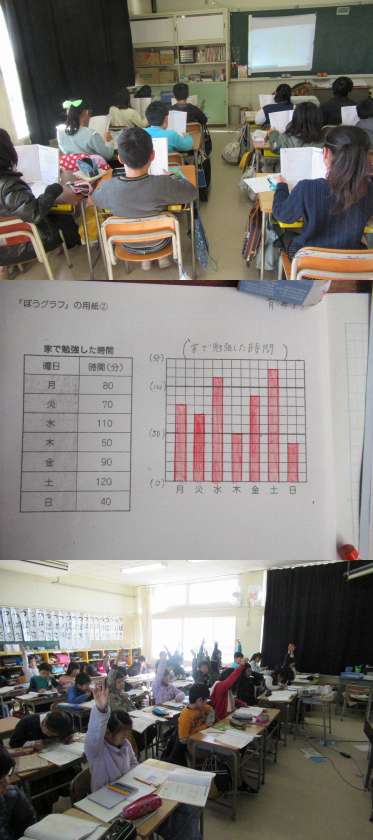 「ぼうグラフ」の用紙②
家で勉強した時間
曜日 時間(分)
月 80
火 70
水 110
木 50
金 90
土 120
日 40
(家で勉強した時間)
(分)
(100)
(50)
(0)
月 火 水 木 金 土 日